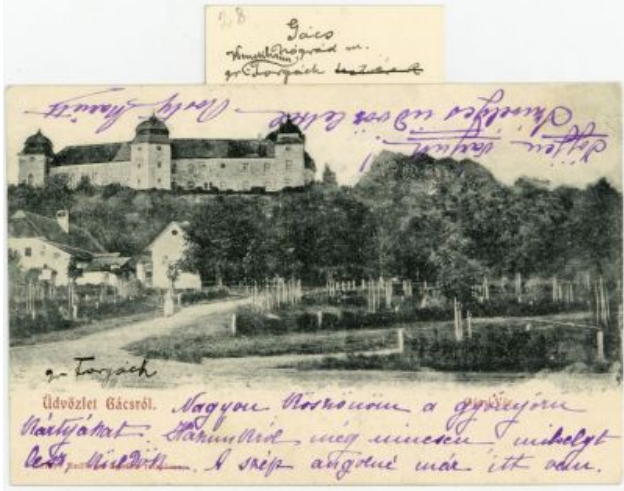 28
Gács
Nógrád m.
gr. Forgách
Jöjjön
Szivélyes üdvözlettel
gr Forgách
Üdvözlet Gácsról.
Nagyon köszönöm a gyönyörű
kártyákat. Házunkról még nincsen mihelyt
lesz küldök. A szép angolné már itt van.